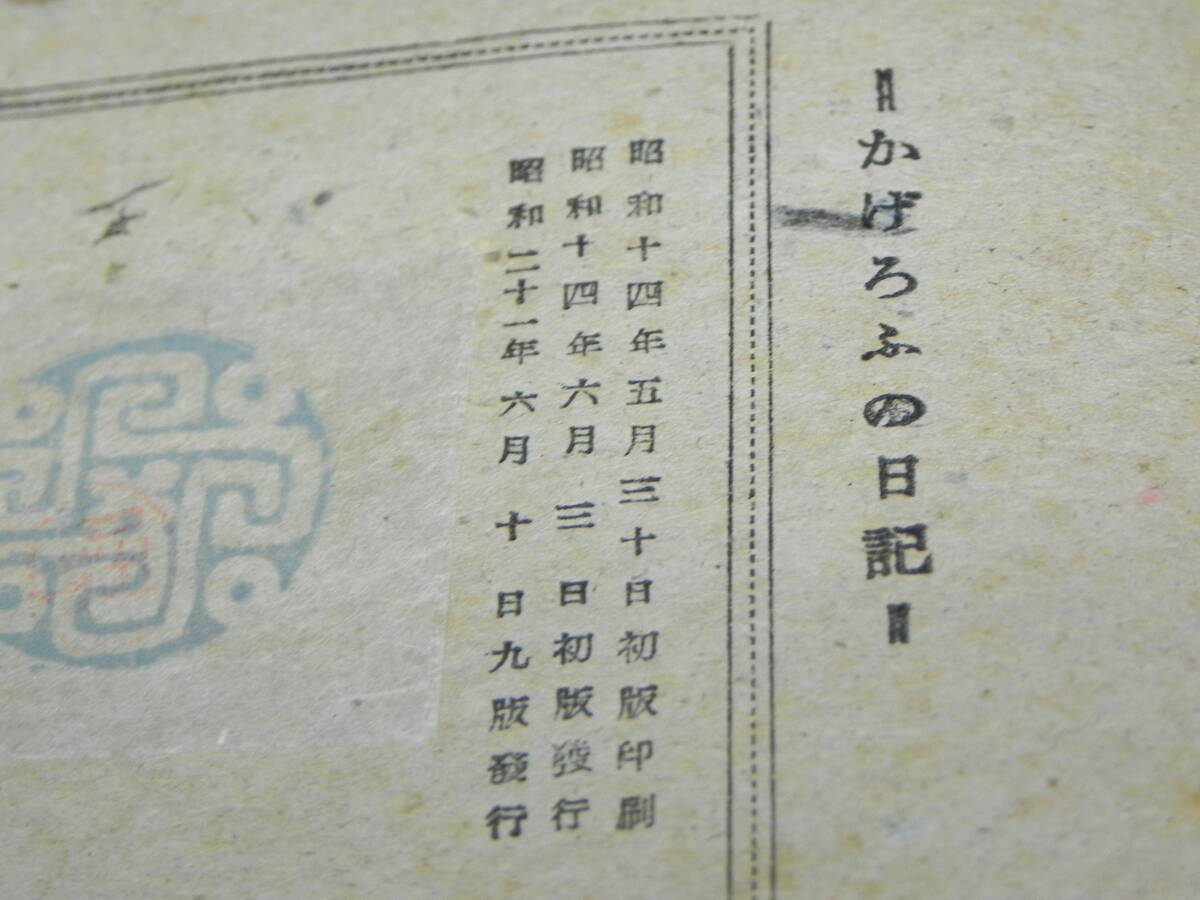 かげろふの日記
昭和十四年五月三十日初版印刷
昭和十四年六月三日初版發行
昭和二十一年六月十日九版發行